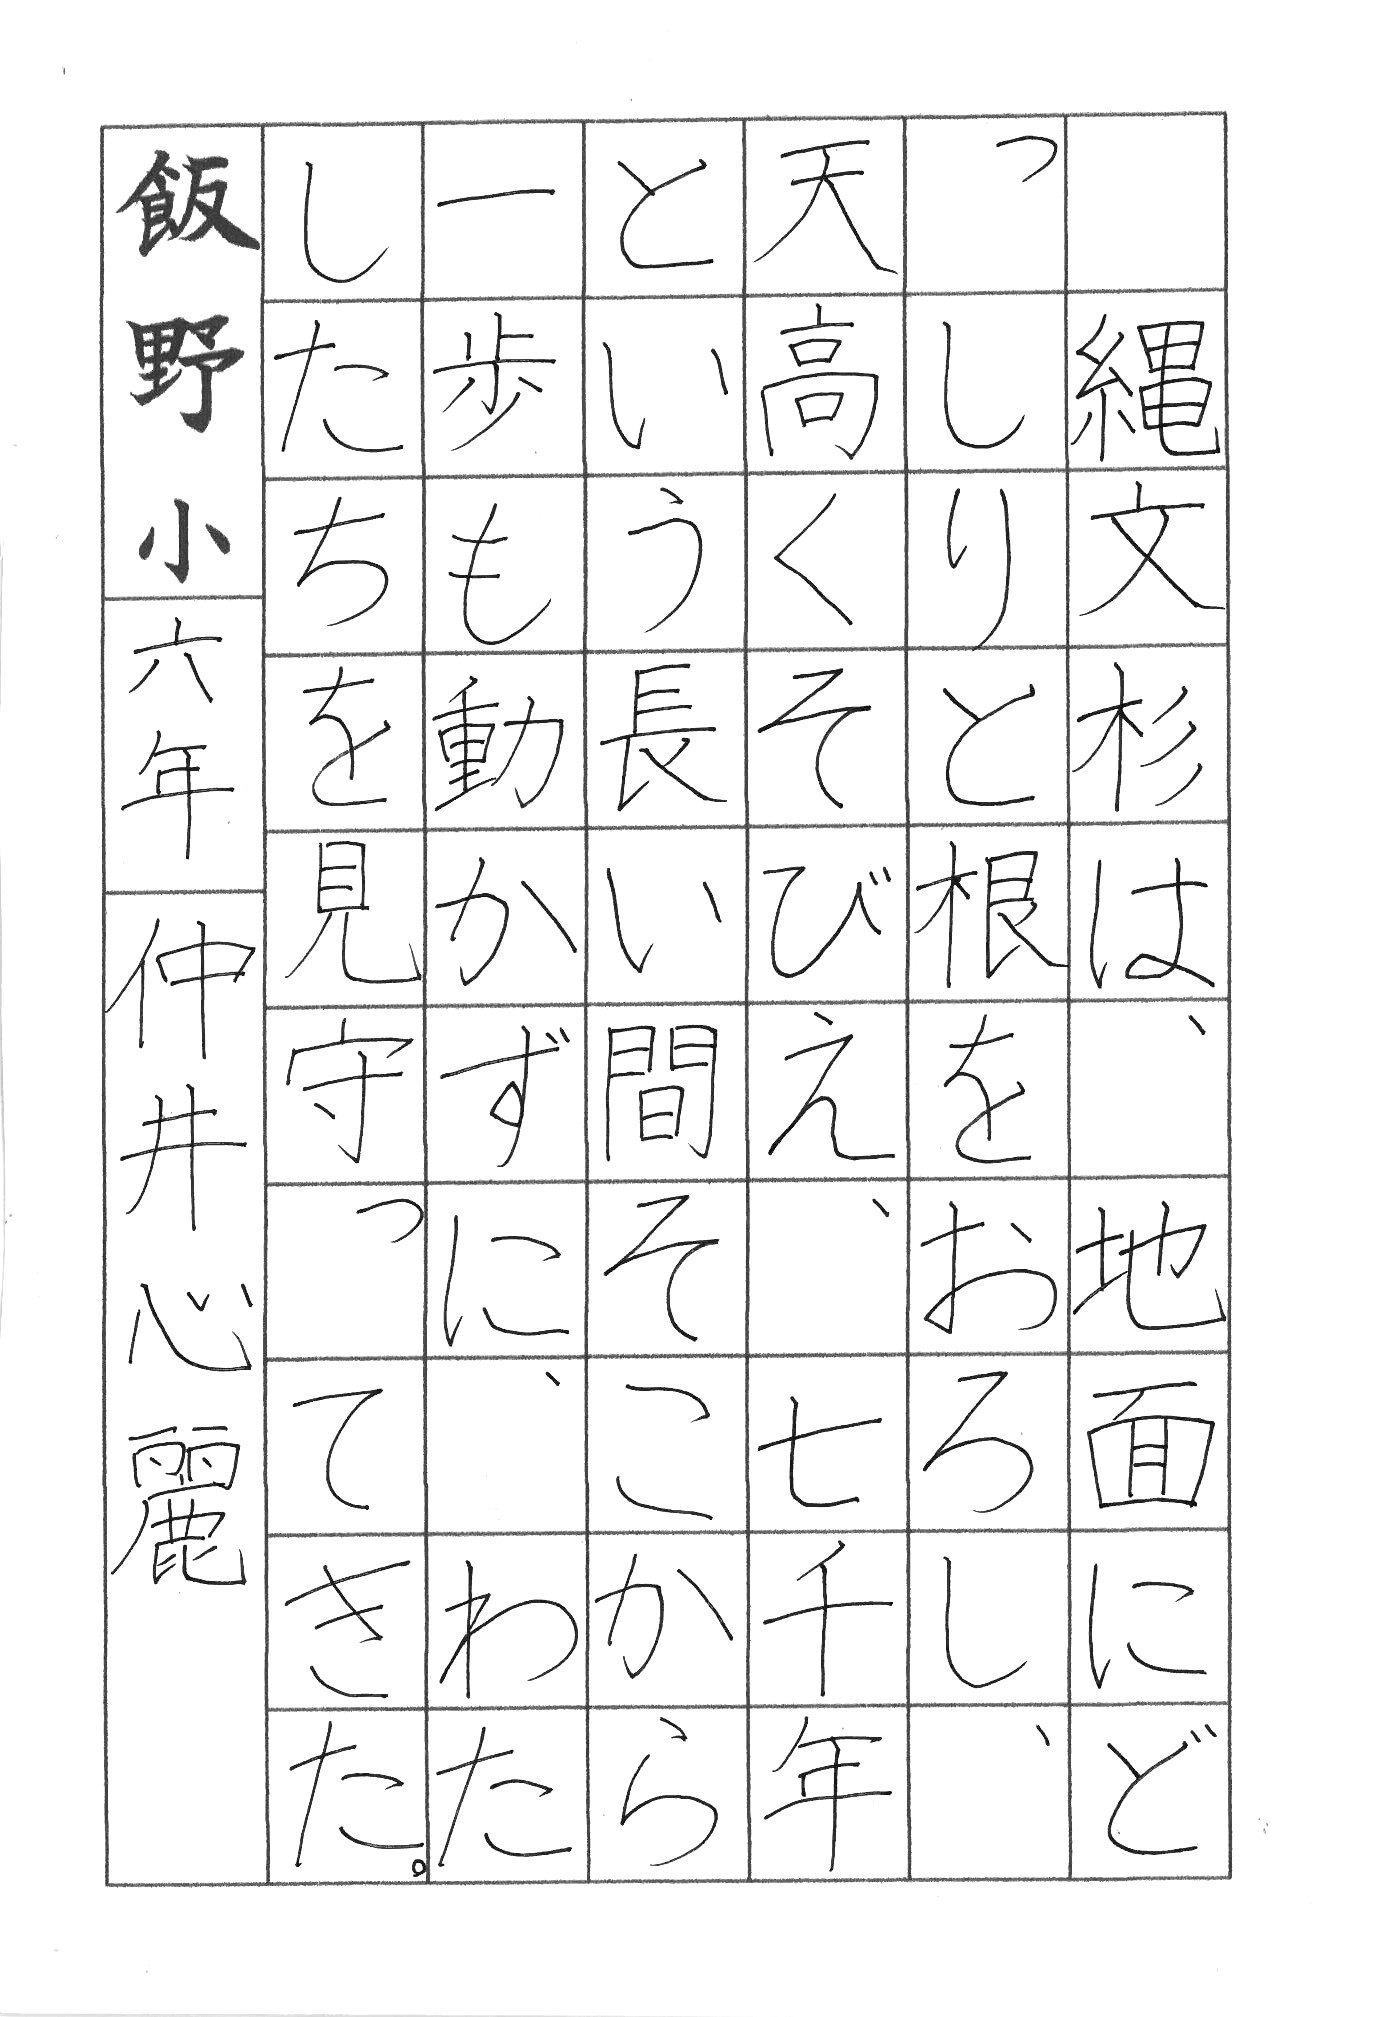 縄文杉は、地面にど
っしりと根をおろし、
天高くそびえ、七千年
という長い間そこから
一歩も動かずに、わた
したちを見守ってきた。
飯野小六年仲井心麗